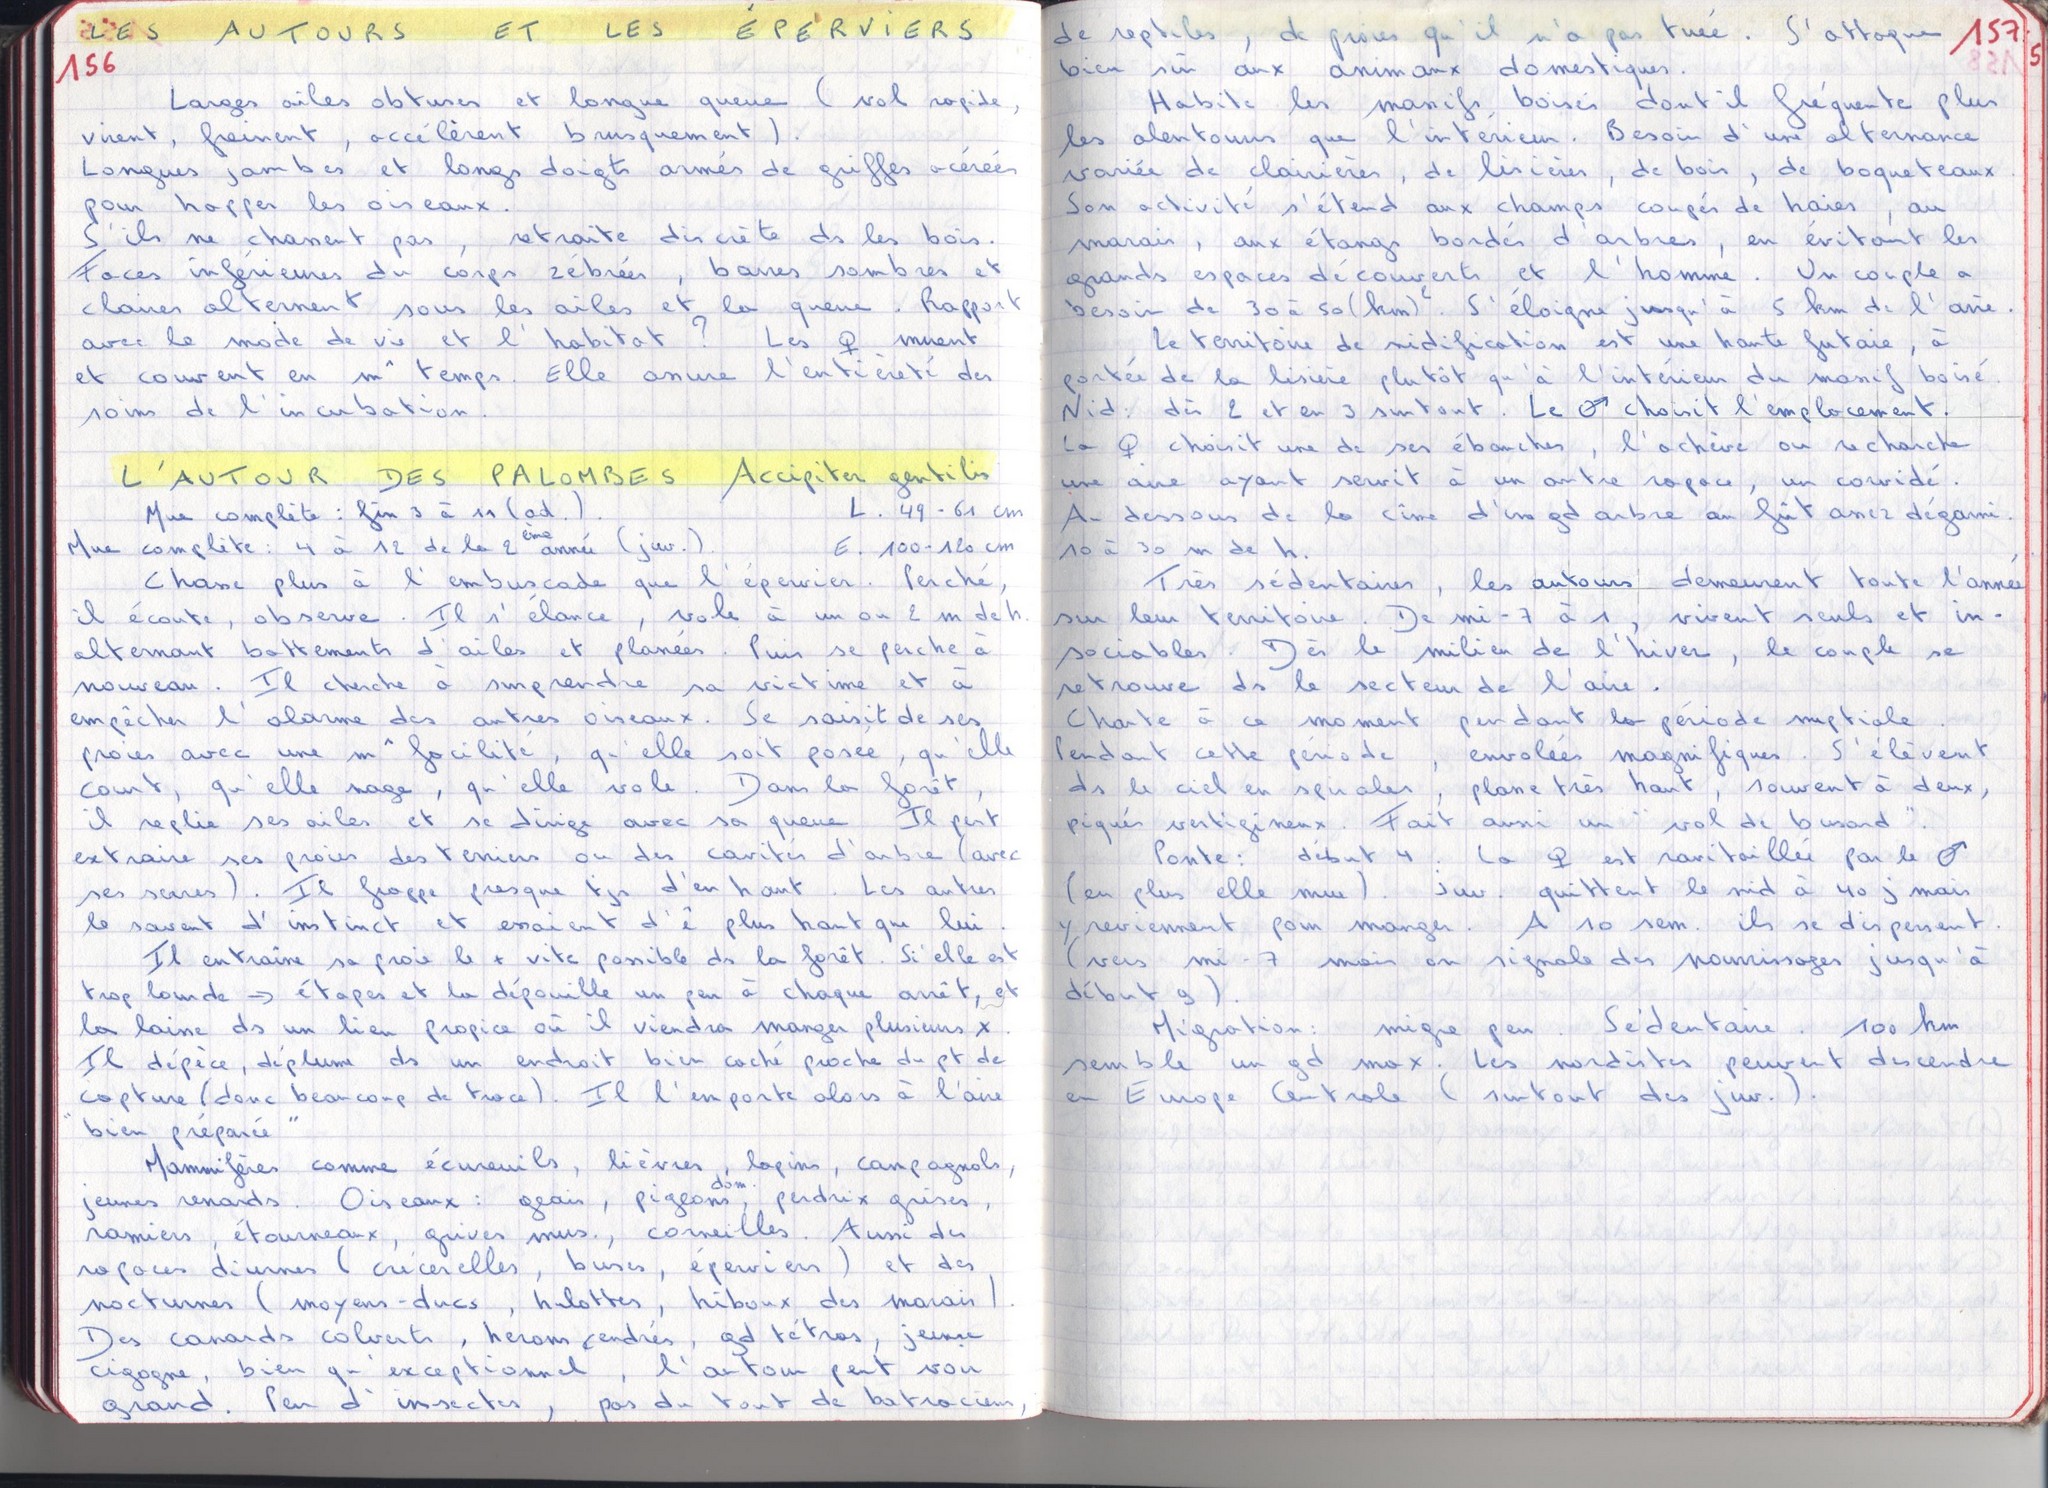 LES AUTOURS ET LES ÉPERVIERS
156
Larges ailes obtuses et longue queue (vol rapide,
virent, freinent, accélèrent brusquement).
Longues jambes et longs doigts armés de griffes acérées
pour happer les oiseaux.
S'ils ne chassent pas, retraite discrète ds les bois.
Faces inférieures du corps zébrées, barres sombres et
claires alternent sous les ailes et la queue. Rapport
avec le mode de vie et l'habitat? Les ♀ muent
et couvent en m^ temps. Elle assure l'entièreté des
soins de l'incubation.
L'AUTOUR DES PALOMBES Accipiter gentilis
Mue complète: fin 3 à 11 (ad.). L. 49-61 cm
Mue complète: 4 à 12 de la 2ème année (juv.). E. 100-120 cm
Chasse plus à l'embuscade que l'épervier. Perché,
il écoute, observe. Il s'élance, vole à un ou 2 m de h.
alternant battements d'ailes et planées. Puis se perche à
nouveau. Il cherche à surprendre sa victime et à
empêcher l'alarme des autres oiseaux. Se saisit de ses
proies avec une m^ facilité, qu'elle soit posée, qu'elle
court, qu'elle nage, qu'elle vole. Dans la forêt,
il replie ses ailes et se dirige avec sa queue Il peut
extraire ses proies des terriers ou des cavités d'arbre (avec
ses serres). Il frappe presque tjs d'en haut. Les autres
le savent d'instinct et essaient d'ê plus haut que lui.
Il entraîne sa proie le + vite possible ds la forêt. Si elle est
trop lourde → étapes et la dépouille un peu à chaque arrêt, et
la laisse ds un lieu propice où il viendra manger plusieurs x.
Il dépèce, déplume ds un endroit bien caché proche du pt de
capture (donc beaucoup de trace). Il l'emporte alors à l'aire
"bien préparée"
Mammifères comme écureuils, lièvres, lapins, campagnols,
jeunes renards. Oiseaux: geais, pigeons dom., perdrix grises,
ramiers, étourneaux, grives mus., corneilles. Aussi des
rapaces diurnes (crécerelles, buses, éperviers) et des
nocturnes (moyens-ducs, hulottes, hiboux des marais).
Des canards colverts, hérons cendrés, gd tétras, jeune
cigogne, bien qu'exceptionnel, l'autour peut voir
grand. Peu d'insectes, pas du tout de batraciens,
157
5
de reptiles, de proies qu'il n'a pas tuée. S'attaque
bien sûr aux animaux domestiques.
Habite les massifs boisés dont il fréquente plus
les alentours que l'intérieur. Besoin d'une alternance
variée de clairières, de lisières, de bois, de boqueteaux.
Son activité s'étend aux champs coupés de haies, au
marais, aux étangs bordés d'arbres, en évitant les
grands espaces découverts et l'homme. Un couple a
besoin de 30 à 50 (km)². S'éloigne jusqu'à 5 km de l'aire.
Le territoire de nidification est une haute futaie, à
portée de la lisière plutôt qu'à l'intérieur du massif boisé.
Nid: dès 2 et en 3 surtout. Le ♂ choisit l'emplacement.
La ♀ choisit une de ses ébauches, l'achève ou recharche
une aire ayant servit à un autre rapace, un corvidé.
Au dessous de la cîme d'un gd arbre au fût assez dégarni.
10 à 30 m de h.
Très sédentaires, les autours demeurent toute l'année
sur leur territoire. De mi-7 à 1, vivent seuls et in-
sociables. Dès le milieu de l'hiver, le couple se
retrouve ds le secteur de l'aire.
Chante à ce moment pendant la période nuptiale.
Pendant cette période, envolées magnifiques. S'élèvent
ds le ciel en spirales, plane très haut, souvent à deux,
piqués vertigineux. Fait aussi un "vol de busard".
Ponte: début 4. La ♀ est ravitaillée par le ♂
(en plus elle mue). Juv. quittent le nid à 40 j mais
y reviennent pour manger. A 10 sem. ils se dispersent.
(vers mi-7 mais on signale des nourrissages jusqu'à
début 9).
Migration: migre peu. Sédentaire. 100 km
semble un gd max. Les nordistes peuvent descendre
en Europe Centrale (surtout des juv.).